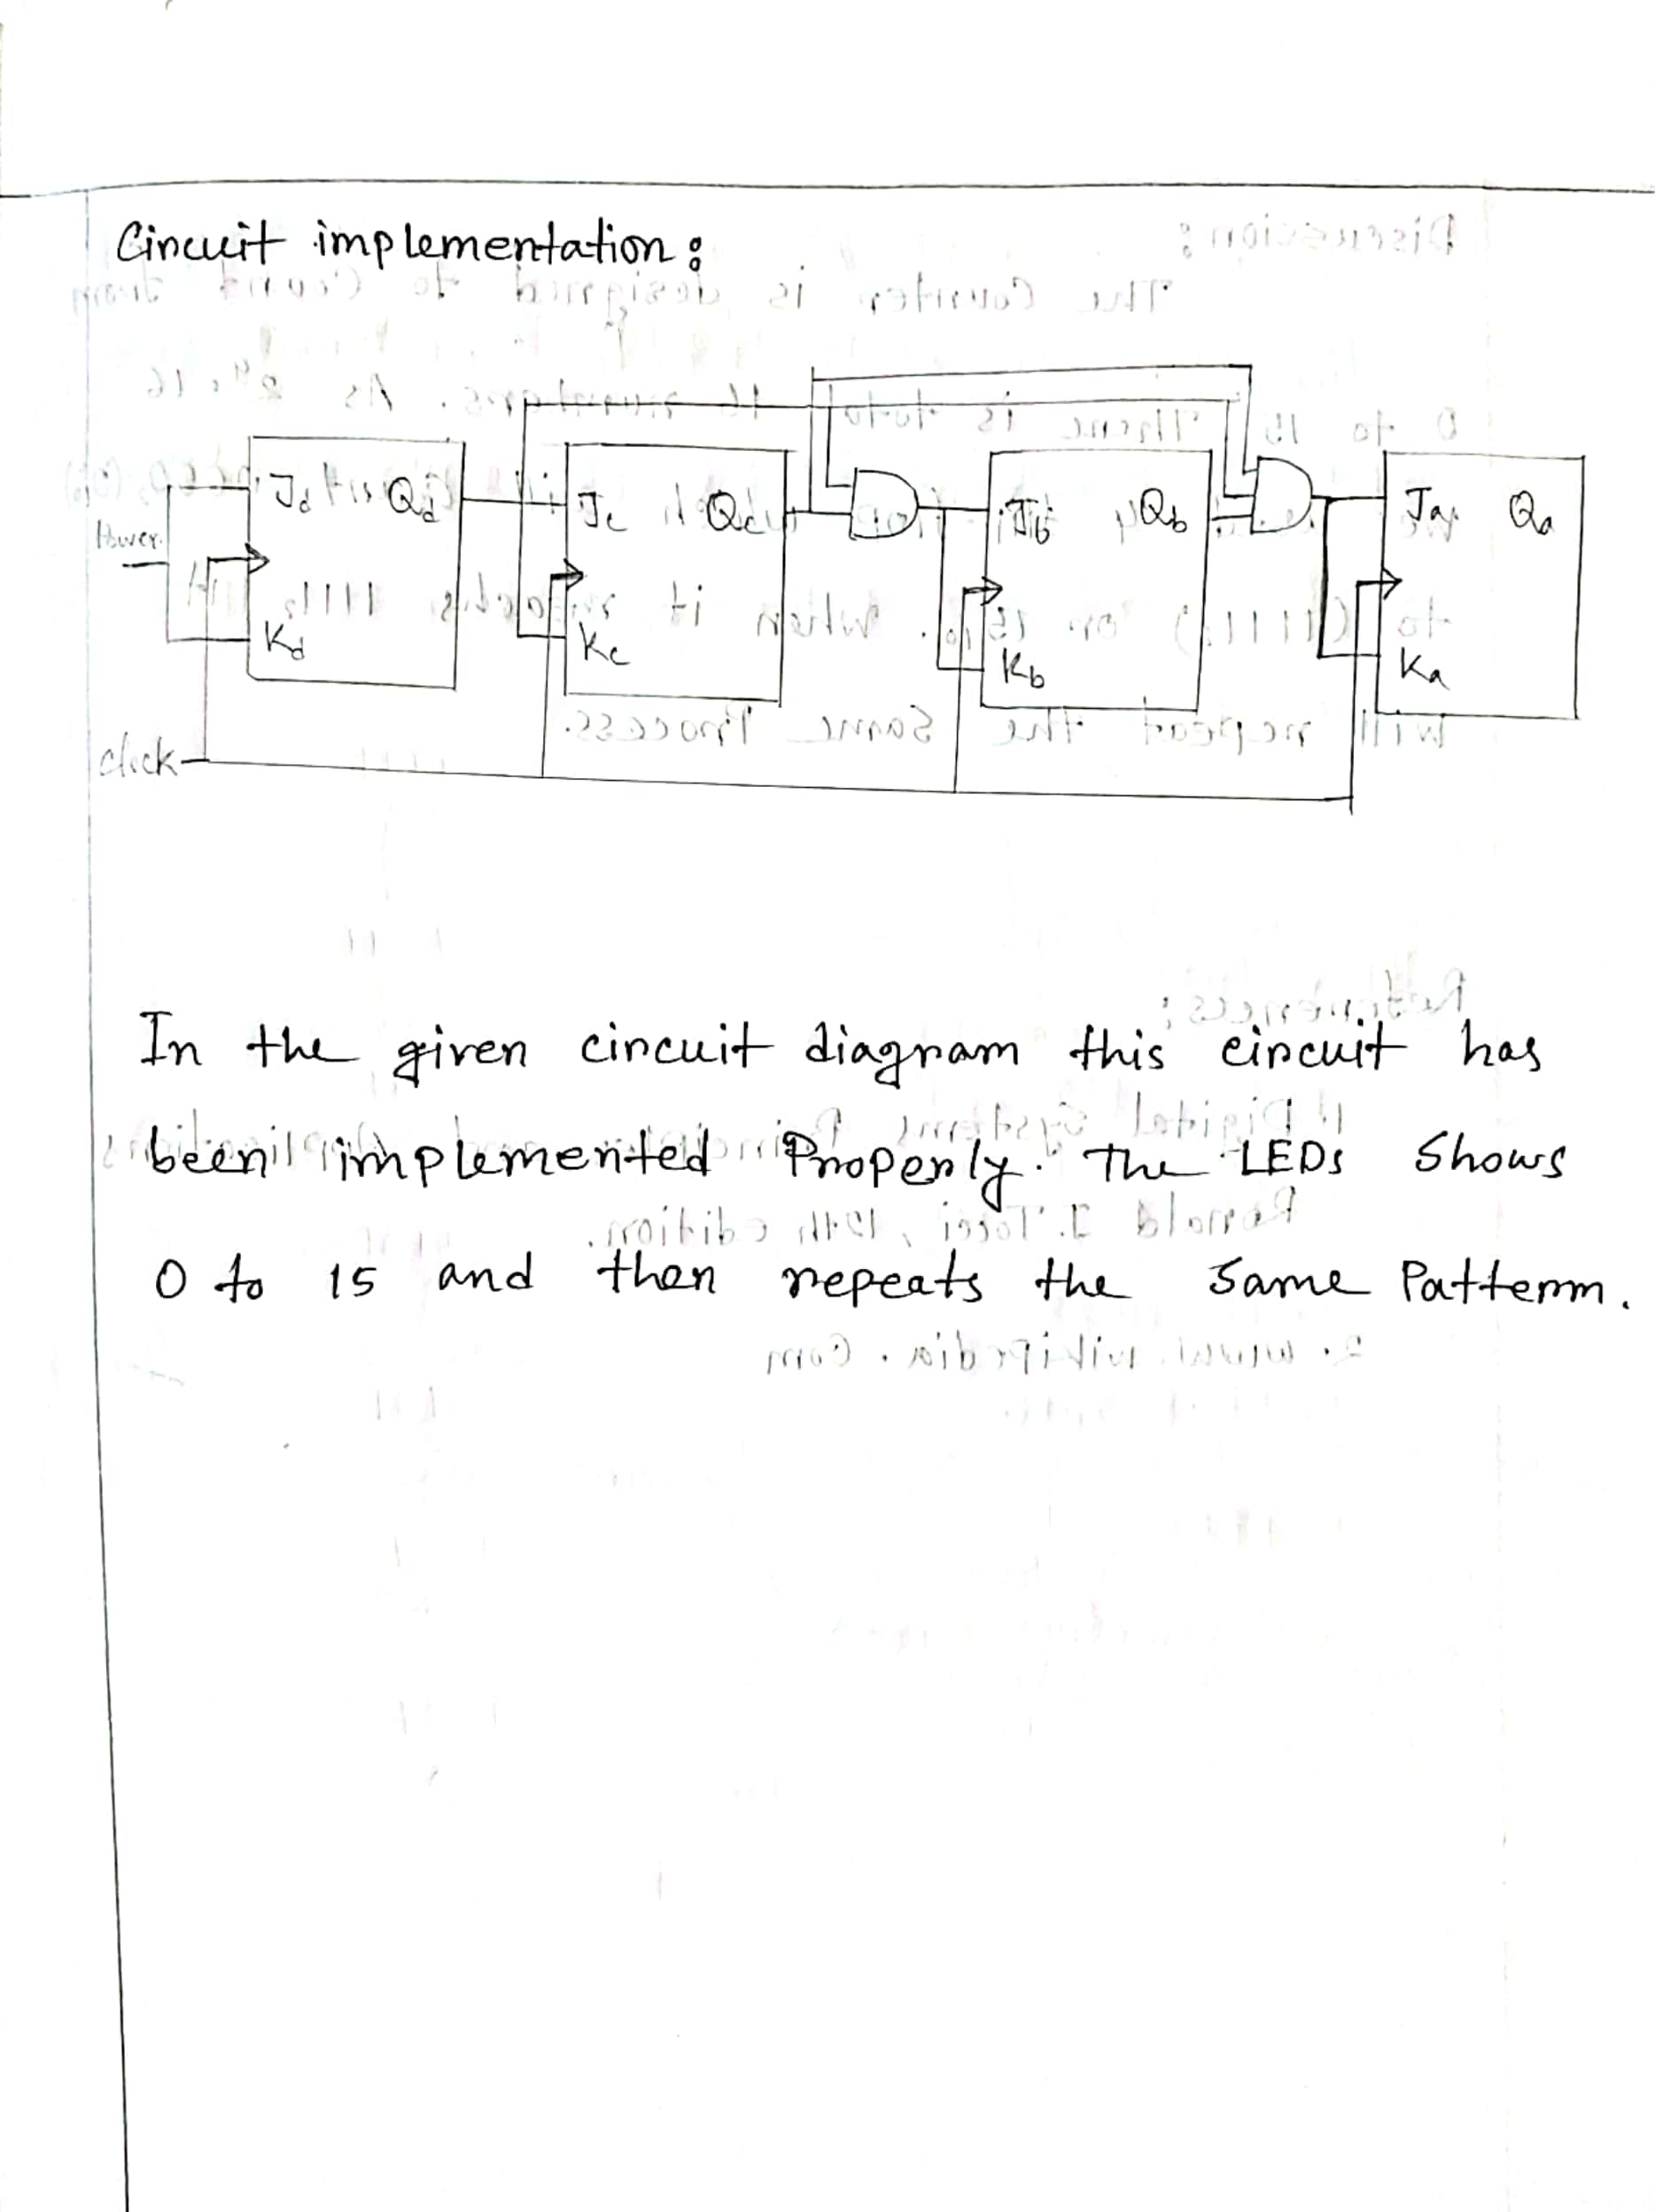 Circuit implementation :
Power
Jd Qd
Kd
Jc Qc
Kc
Jb Qb
Kb
Ja Qa
Ka
click
In the given circuit diagram this circuit has
been implemented Properly. The LEDs Shows
0 to 15 and then repeats the Same Pattern.